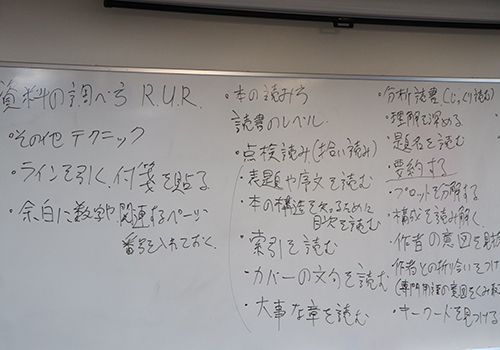 資料の調べ方 R.U.R.
・その他テクニック
・ラインを引く、付箋を貼る
・余白に数字や関連するページ
番号を入れておく。
・本の読み方
読書のレベル
・点検読み(拾い読み)
・表題や序文を読む
・本の構造を知るために
目次を読む
・索引を読む
・カバーの文句を読む
・大事な章を読む
・分析読書(じっくり読む)
・理解を深める
・題名を読む
・要約する
・プロットを分解する
・構成を読み解く
・作者の意図を
作者との折り合いをつけ
(専門用語の意図をくみ取
・キーワードを見つける